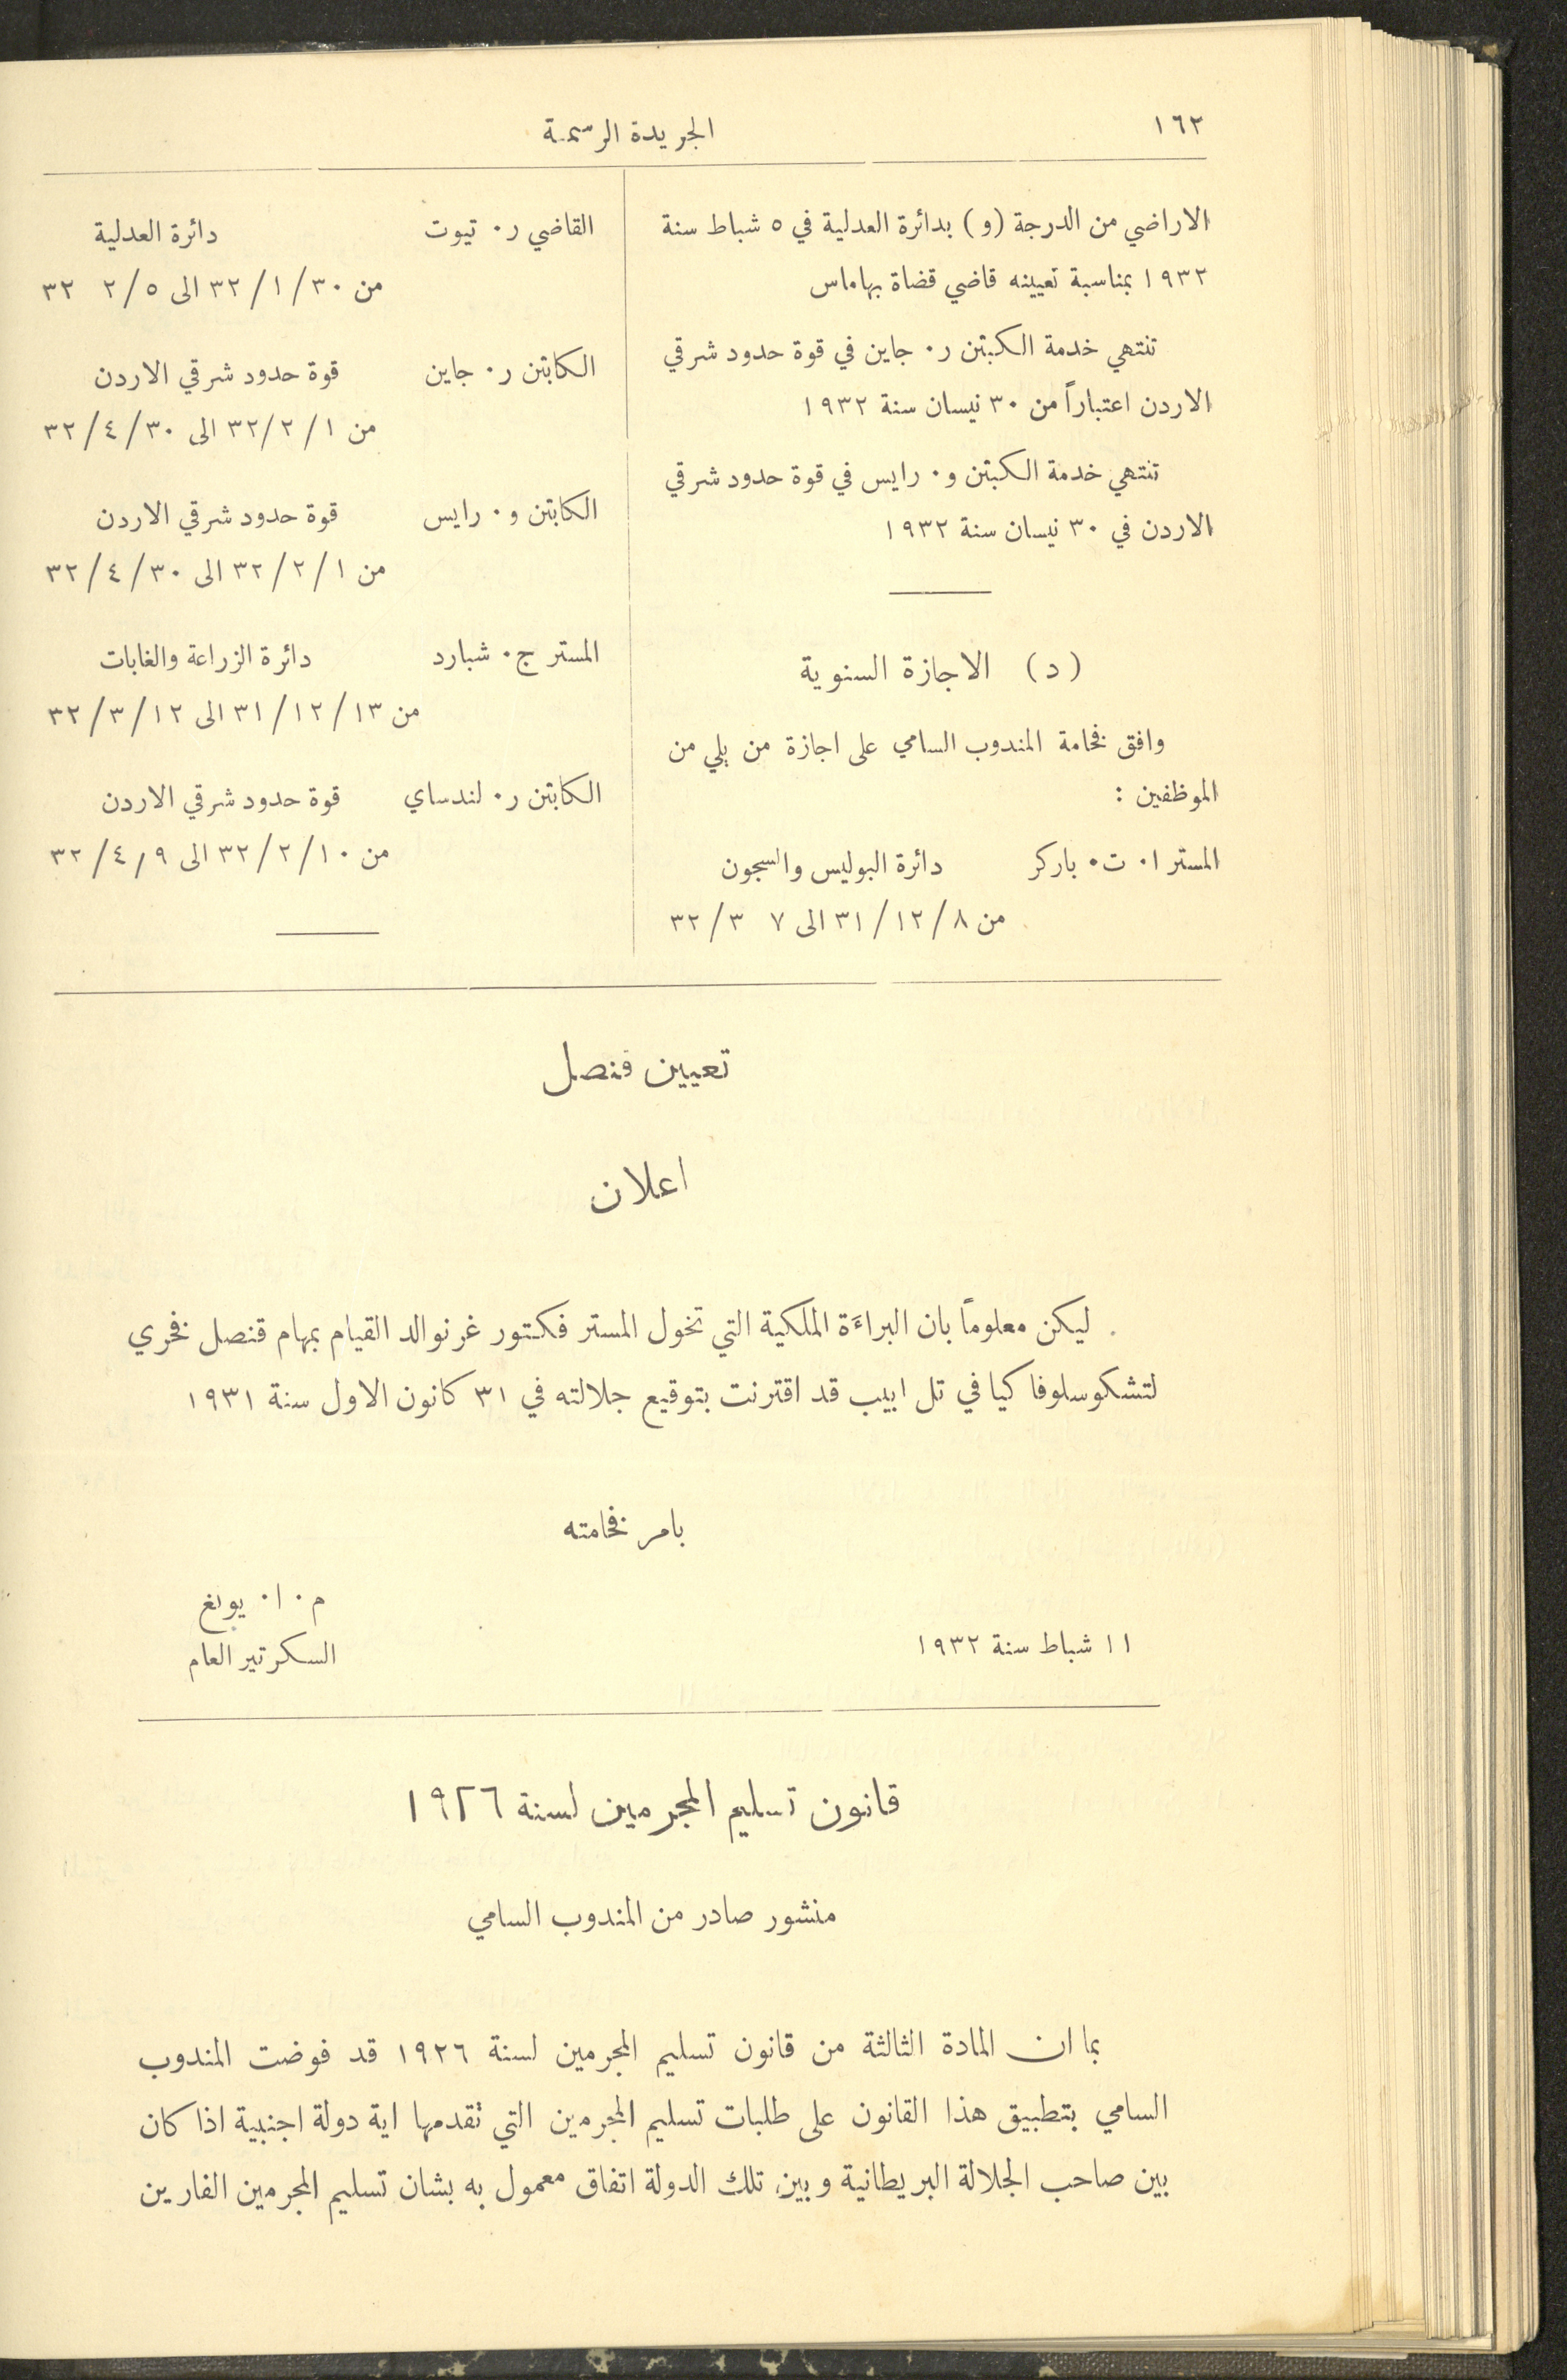 ١٦٢
الجريدة الرسمية
الاراضي من الدرجة (و) بدائرة العدلية في ٥ شباط سنة
١٩٣٢ بمناسبة تعيينه قاضي قضاة بهاماس
تنتهي خدمة الكبتن ر٠ جاين في قوة حدود شرقي
الاردن اعتباراً من ٣٠ نيسان سنة ١٩٣٢
تنتهي خدمة الكبتن و٠ رايس في قوة حدود شرقي
الاردن في ٣٠ نيسان سنة ١٩٣٢
(د) الاجازة السنوية
وافق فخامة المندوب السامي على اجازة من يلي من
الموظفين :
المستر ا٠ ت٠ باركر دائرة البوليس والسجون
من ٨/١٢/٣١ الى ٧ ٣/٣٢
القاضي ر٠ تيوت دائرة العدلية
من ٣٠/١/٣٢ الى ٥/٢ ٣٢
الكابتن ر٠ جاين قوة حدود شرقي الاردن
من ١/٢/٣٢ الى ٣٠/٤/٣٢
الكابتن و٠ رايس قوة حدود شرقي الاردن
من ١/٢/٣٢ الى ٣٠/٤/٣٢
المستر ج٠ شبارد دائرة الزراعة والغابات
من ١٣/١٢/٣١ الى ١٢/٣/٣٢
الكابتن ر٠ لندساي قوة حدود شرقي الاردن
من ١٠/٢/٣٢ الى ٩/٤/٣٢
تعيين قنصل
اعلان
ليكن معلوماً بان البراءة الملكية التي تخول المستر فكتور غرنوالد القيام بمهام قنصل فخري
لتشكوسلوفاكيا في تل ابيب قد اقترنت بتوقيع جلالته في ٣١ كانون الاول سنة ١٩٣١
بامر فخامته
م٠ ا٠ يونغ
١١ شباط سنة ١٩٣٢ السكرتير العام
قانون تسليم المجرمين لسنة ١٩٢٦
منشور صادر من المندوب السامي
بما ان المادة الثالثة من قانون تسليم المجرمين لسنة ١٩٢٦ قد فوضت المندوب
السامي بتطبيق هذا القانون على طلبات تسليم المجرمين التي تقدمها اية دولة اجنبية اذا كان
بين صاحب الجلالة البريطانية وبين تلك الدولة اتفاق معمول به بشان تسليم المجرمين الفارين